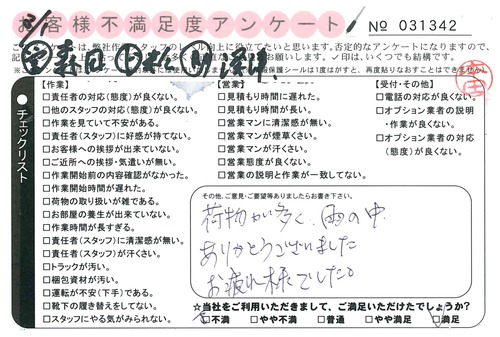 お客様不満足度アンケート
№ 031342
このアンケートは、弊社作業スタッフのレベル向上に役立てたいと思います。否定的なアンケートになりますので、
印は、いくつでも結構です。
保護シールは1度はがすと、再度貼りなおすことはできません。
チェックリスト
【作業】
□責任者の対応(態度)が良くない。
□他のスタッフの対応(態度)が良くない。
□作業を見ていて不安がある。
□責任者(スタッフ)に好感が持てない。
□お客様への挨拶が出来ていない。
□ご近所への挨拶・気遣いが無い。
□作業開始前の内容確認がなかった。
□作業開始時間が遅れた。
□荷物の取り扱いが雑である。
□お部屋の養生が出来ていない。
□作業時間が長すぎる。
□責任者(スタッフ)に清潔感が無い。
□責任者(スタッフ)が汗くさい。
□トラックが汚い。
□梱包資材が汚い。
□運転が不安(下手)である。
□靴下の履き替えをしてない。
□スタッフにやる気がみられない。
【営業】
□見積もり時間に遅れた。
□見積もり時間が長い。
□営業マンに清潔感が無い。
□営業マンが煙草くさい。
□営業マンが汗くさい。
□営業態度が良くない。
□営業の説明と作業が一致してない。
【受付・その他】
□電話の対応が良くない。
□オプション業者の説明
・作業が良くない。
□オプション業者の対応
(態度)が良くない。
その他、ご意見・ご要望等ありましたらお書き下さい。
荷物が多く、雨の中
ありがとうございました
お疲れ様でした。
☆当社をご利用いただきまして、ご満足いただけたでしょうか?
□不満 □やや不満 □普通 □やや満足 □満足